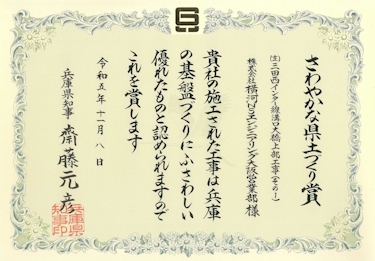 さわやかな県土づくり賞
(主)三田西インター線溝口大橋上部工事(その1)
株式会社横河NSエンジニアリング大阪営業部 様
貴社の施工された工事は兵庫
の基盤づくりにふさわしい
優れたものと認められますので
これを賞します
令和五年十一月八日
兵庫県知事 齋藤元彦
兵庫県
知事印